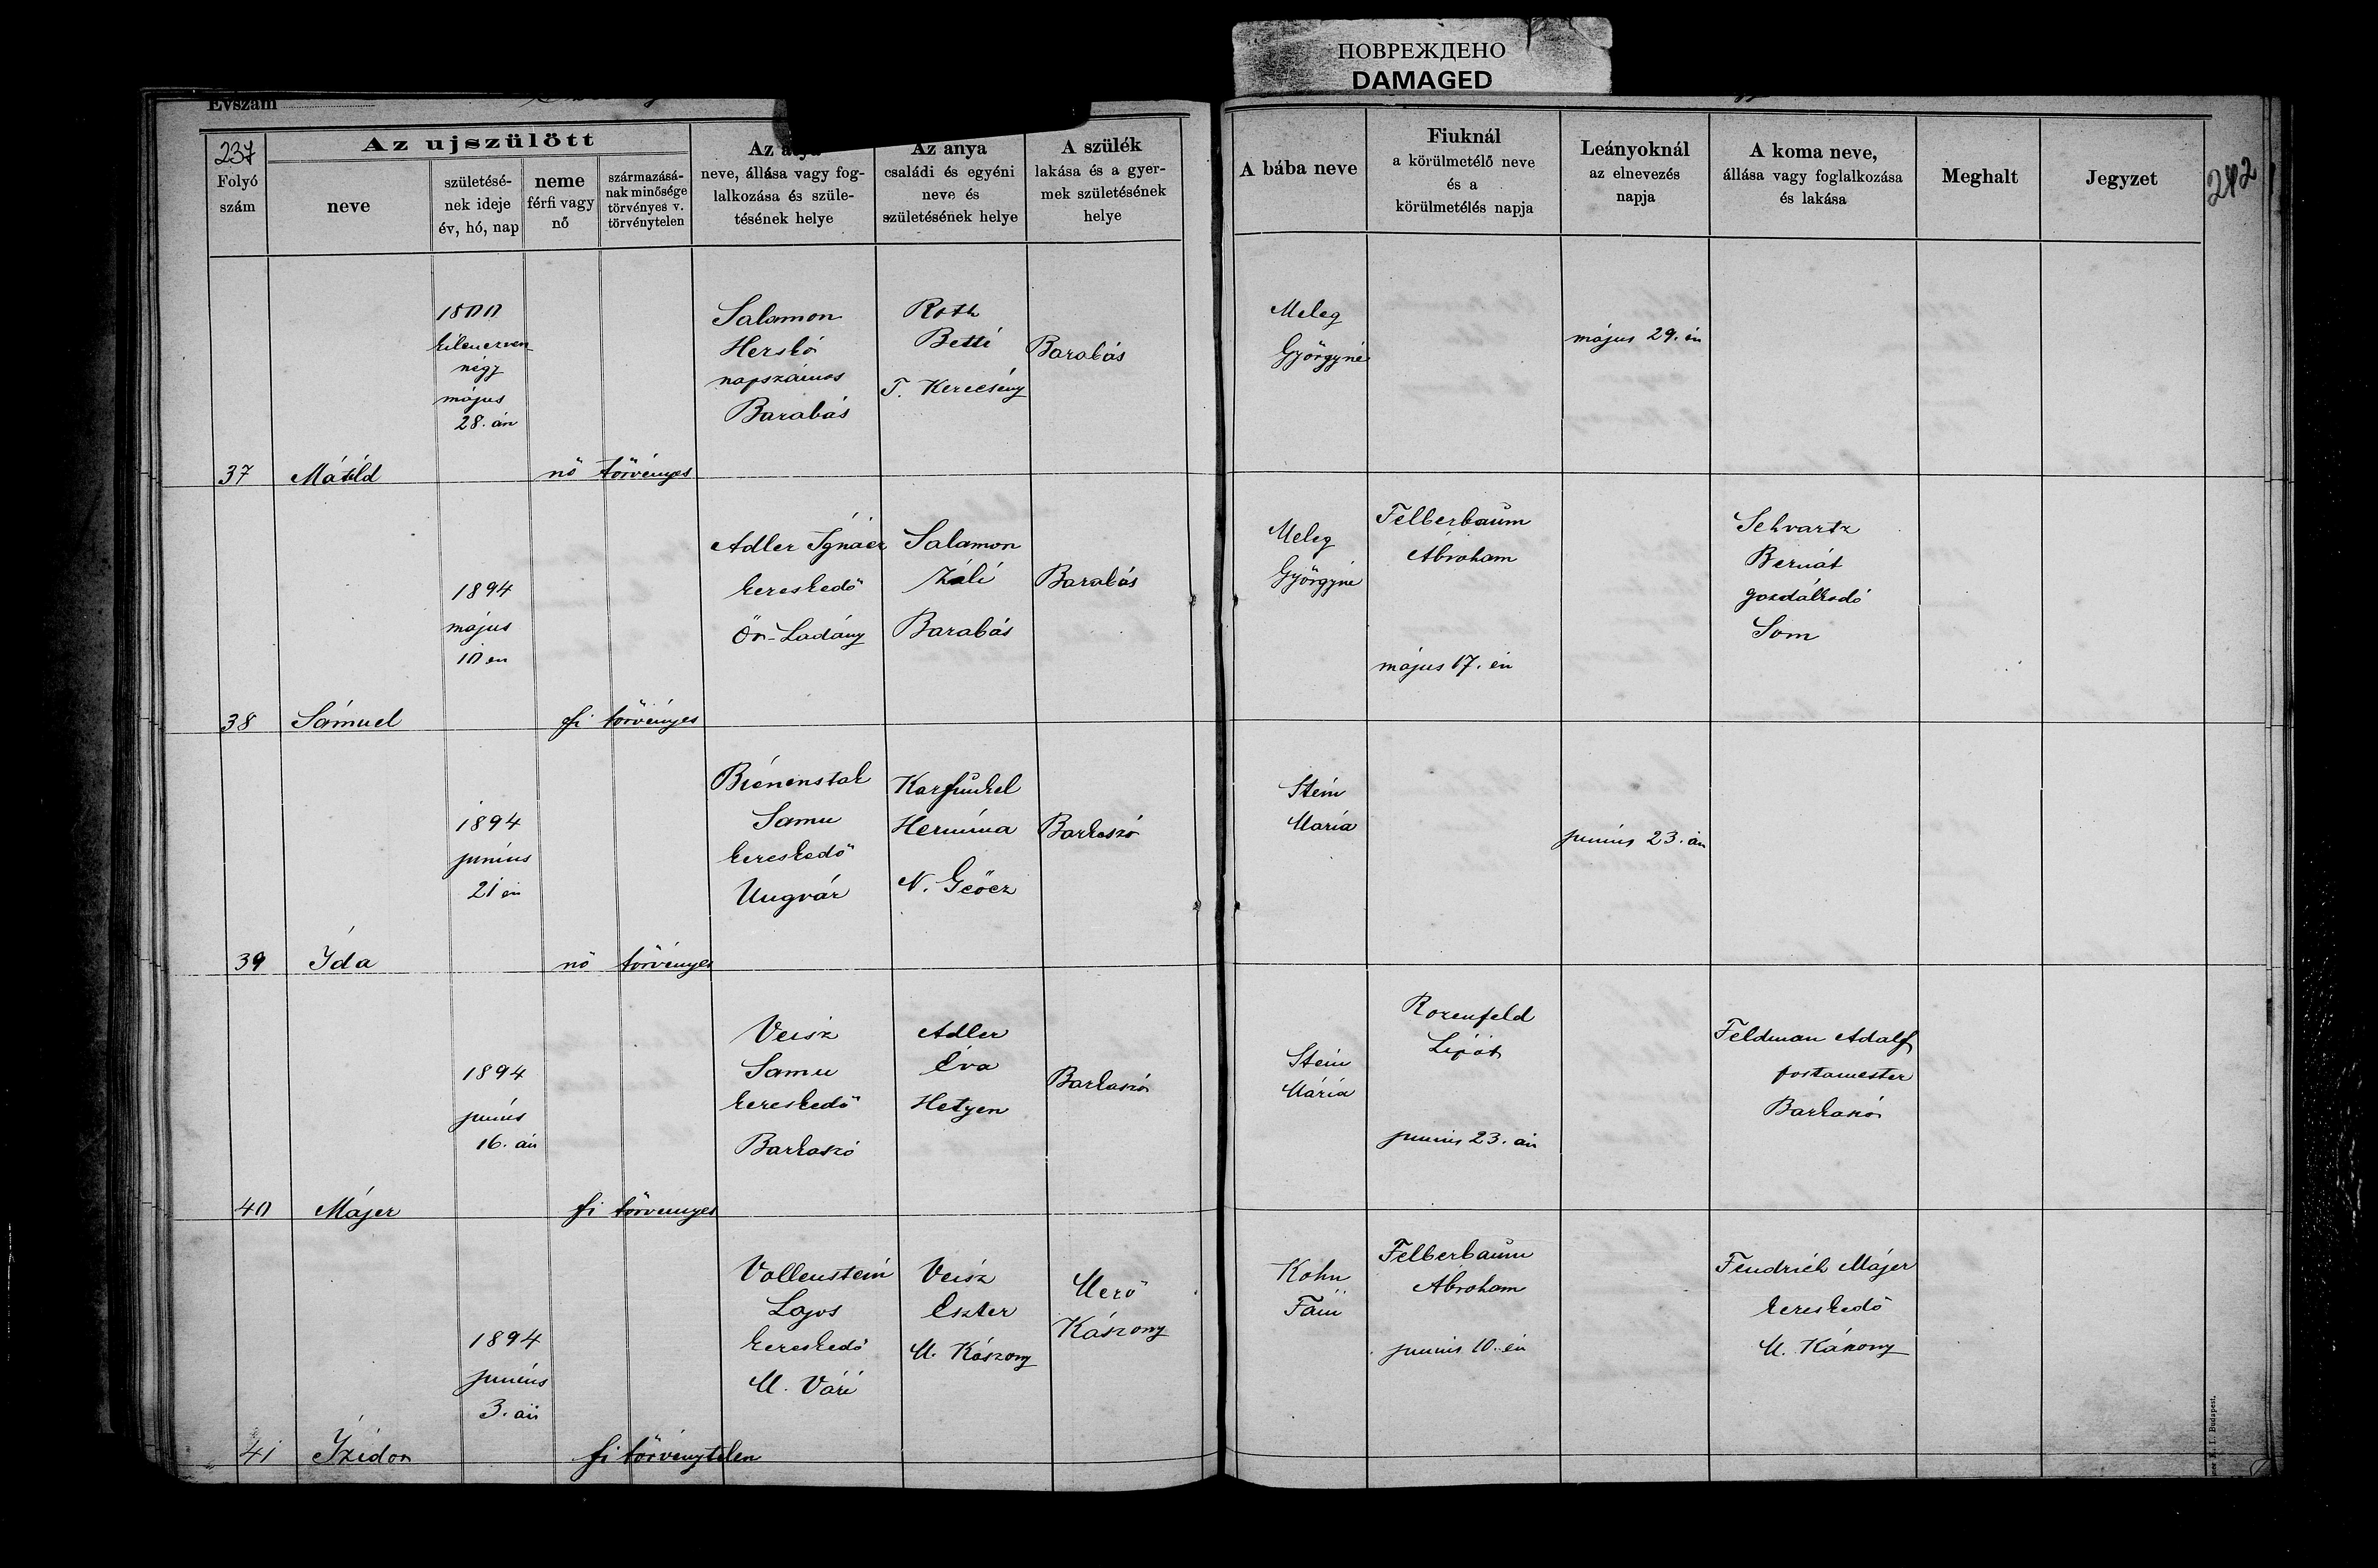 ПОВРЕЖДЕНО
DAMAGED
Évszám
237
Folyó
szám
Az ujszülött
neve
születésé-
nek ideje
év, hó, nap
neme
férfi vagy
nő
származásá-
nak minősége
törvényes v.
törvénytelen
Az atya
neve, állása vagy fog-
lalkozása és szüle-
tésének helye
Az anya
családi és egyéni
neve és
születésének helye
A szülék
lakása és a gyer-
mek születésének
helye
A bába neve
Fiuknál
a körülmetélő neve
és a
körülmetélés napja
Leányoknál
az elnevezés
napja
A koma neve,
állása vagy foglalkozása
és lakása
Meghalt
Jegyzet
242
37
Mátild
1800
kilencven
négy
május
28. án
nő
törvényes
Salamon
Herskó
napszámos
Barabás
Roth
Betti
T. Kerecsény
Barabás
Meleg
Györgyné
május 29. én
38
Sámuel
1894
május
10 én
fi
törvényes
Adler Ignácz
kereskedő
Őr-Ladány
Salamon
Záli
Barabás
Barabás
Meleg
Györgyné
Felberbaum
Ábraham
május 17. én
Schvartz
Bernát
gazdálkodó
Som
39
Ida
1894
junius
21 én
nő
törvényes
Bienenstok
Samu
kereskedő
Ungvár
Karfunkel
Hermina
N. Geőcz
Barkaszó
Stein
Maria
junius 23. án
40
Májer
1894
junius
16. án
fi
törvényes
Veisz
Samu
kereskedő
Barkaszó
Adler
Éva
Hetyen
Barkaszó
Stein
Mária
Rozenfeld
Lipót
junius 23. án
Feldman Adolf
postamester
Barkaszó
41
Izidor
1894
junius
3. án
fi
törvénytelen
Vollenstein
Lajos
kereskedő
M. Vári
Veisz
Eszter
M. Kászony
Mező
Kászony
Kohn
Fáni
Felberbaum
Ábraham
junius 10. én
Fendrich Májer
kereskedő
M. Kászony
I. Budapest.